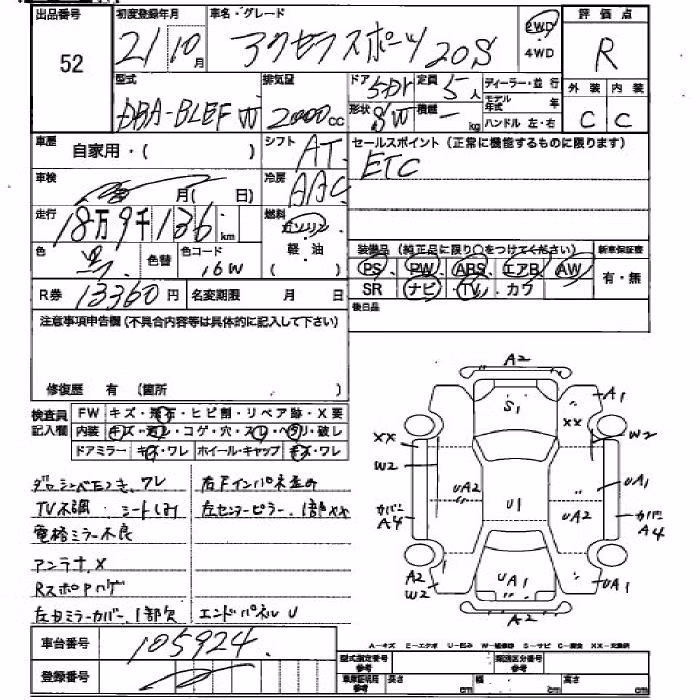 出品番号 初度登録年月 車名・グレード 評価点
52 21 10月 アクセラスポーツ 20S 2WD 4WD R
型式 排気量 ドア 5DR 定員 5人 ディーラー・並行 外装 内装
DBA-BLEFW 2000cc 形状 SW 積載 kg モデル年式 年 ハンドル 左・右 C C
車歴 自家用・( ) シフト AT セールスポイント (正常に機能するものに限ります)
ETC
車検 月( 日) 冷房 AAC
走行 18万9千136km 燃料 ガソリン 軽・油 ( )
色 黒 色替 色コード 16W
装備品 (純正品に限り○をつけてください) 新車保証書
PS、PW、ABS、エアB、AW 有・無
SR ナビ・TV・カワ
R券 13360円 名変期限 月 日
後日品
注意事項申告欄(不具合内容等は具体的に記入して下さい)
修復歴 有 (箇所 )
検査員記入欄 FW キズ・飛石・ヒビ割・リペア跡・X要
内装 キズ・汚レ・コゲ・穴・スレ・ヘタリ・破レ
ドアミラー キズ・ワレ ホイール・キャップ キズ・ワレ
ダッシュベタつき、ワレ
TV不調・シートしみ
電格ミラー不良
アンテナ、X
RスポPハゲ
左ドミラーカバー、1部欠
右Fインパネ歪み
左センターピラー、1部XX
エンドパネルU
A2
S1 A1
XX XX W2
W2
UA2 U1 UA2 U
カバー A4 カバー A4
A2 W2 UA1 UA1
A2
A-キズ E-エクボ U-凹み W-補修跡 S-サビ C-腐食 XX-交換済
車台番号 105924
登録番号
型式指定番号 類別区分番号
車庫証明参考 長さ cm 幅 cm 高さ cm